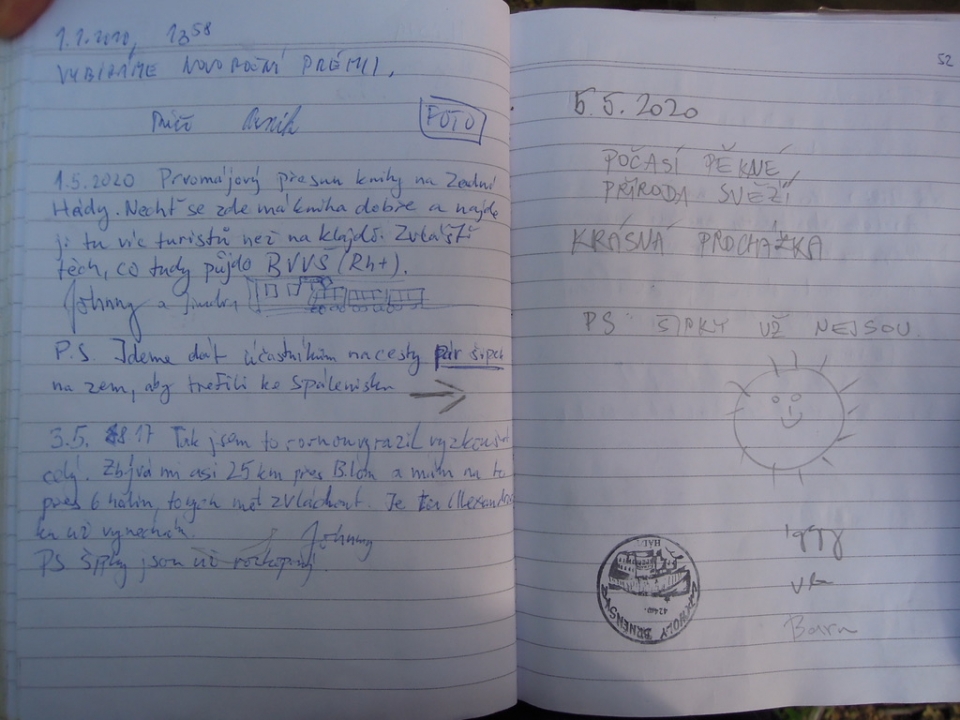 1.1.2020, 13⁵⁸
VYBÍRÁME NOVOROČNÍ PRÉMII.
FOTO
1.5.2020 Prvomájový přesun knihy na Zadní
Hády. Nechť se zde má kniha dobře a najde
ji tu víc turistů než na klajdě. Zvláště
těch, co tudy půjdo BVVS (Rh+).
Johnny a
P.S. Jdeme dát účastníkům na cesty pár šipek
na zem, aby trefili ke Spálenisku
3.5. 17 Tak jsem to rovnou vyrazil vyzkoušet
celý. Zbývá mi asi 25 km přes Bílou a mám na to
přes 6 hodin, to bych měl zvládnout. Je tu
už vynechám.
Johnny
PS Šipky jsou už rozkopaný.
52
5.5.2020
POČASÍ PĚKNÉ,
PŘÍRODA SVĚŽÍ,
KRÁSNÁ PROCHÁZKA
PS ŠIPKY UŽ NEJSOU.